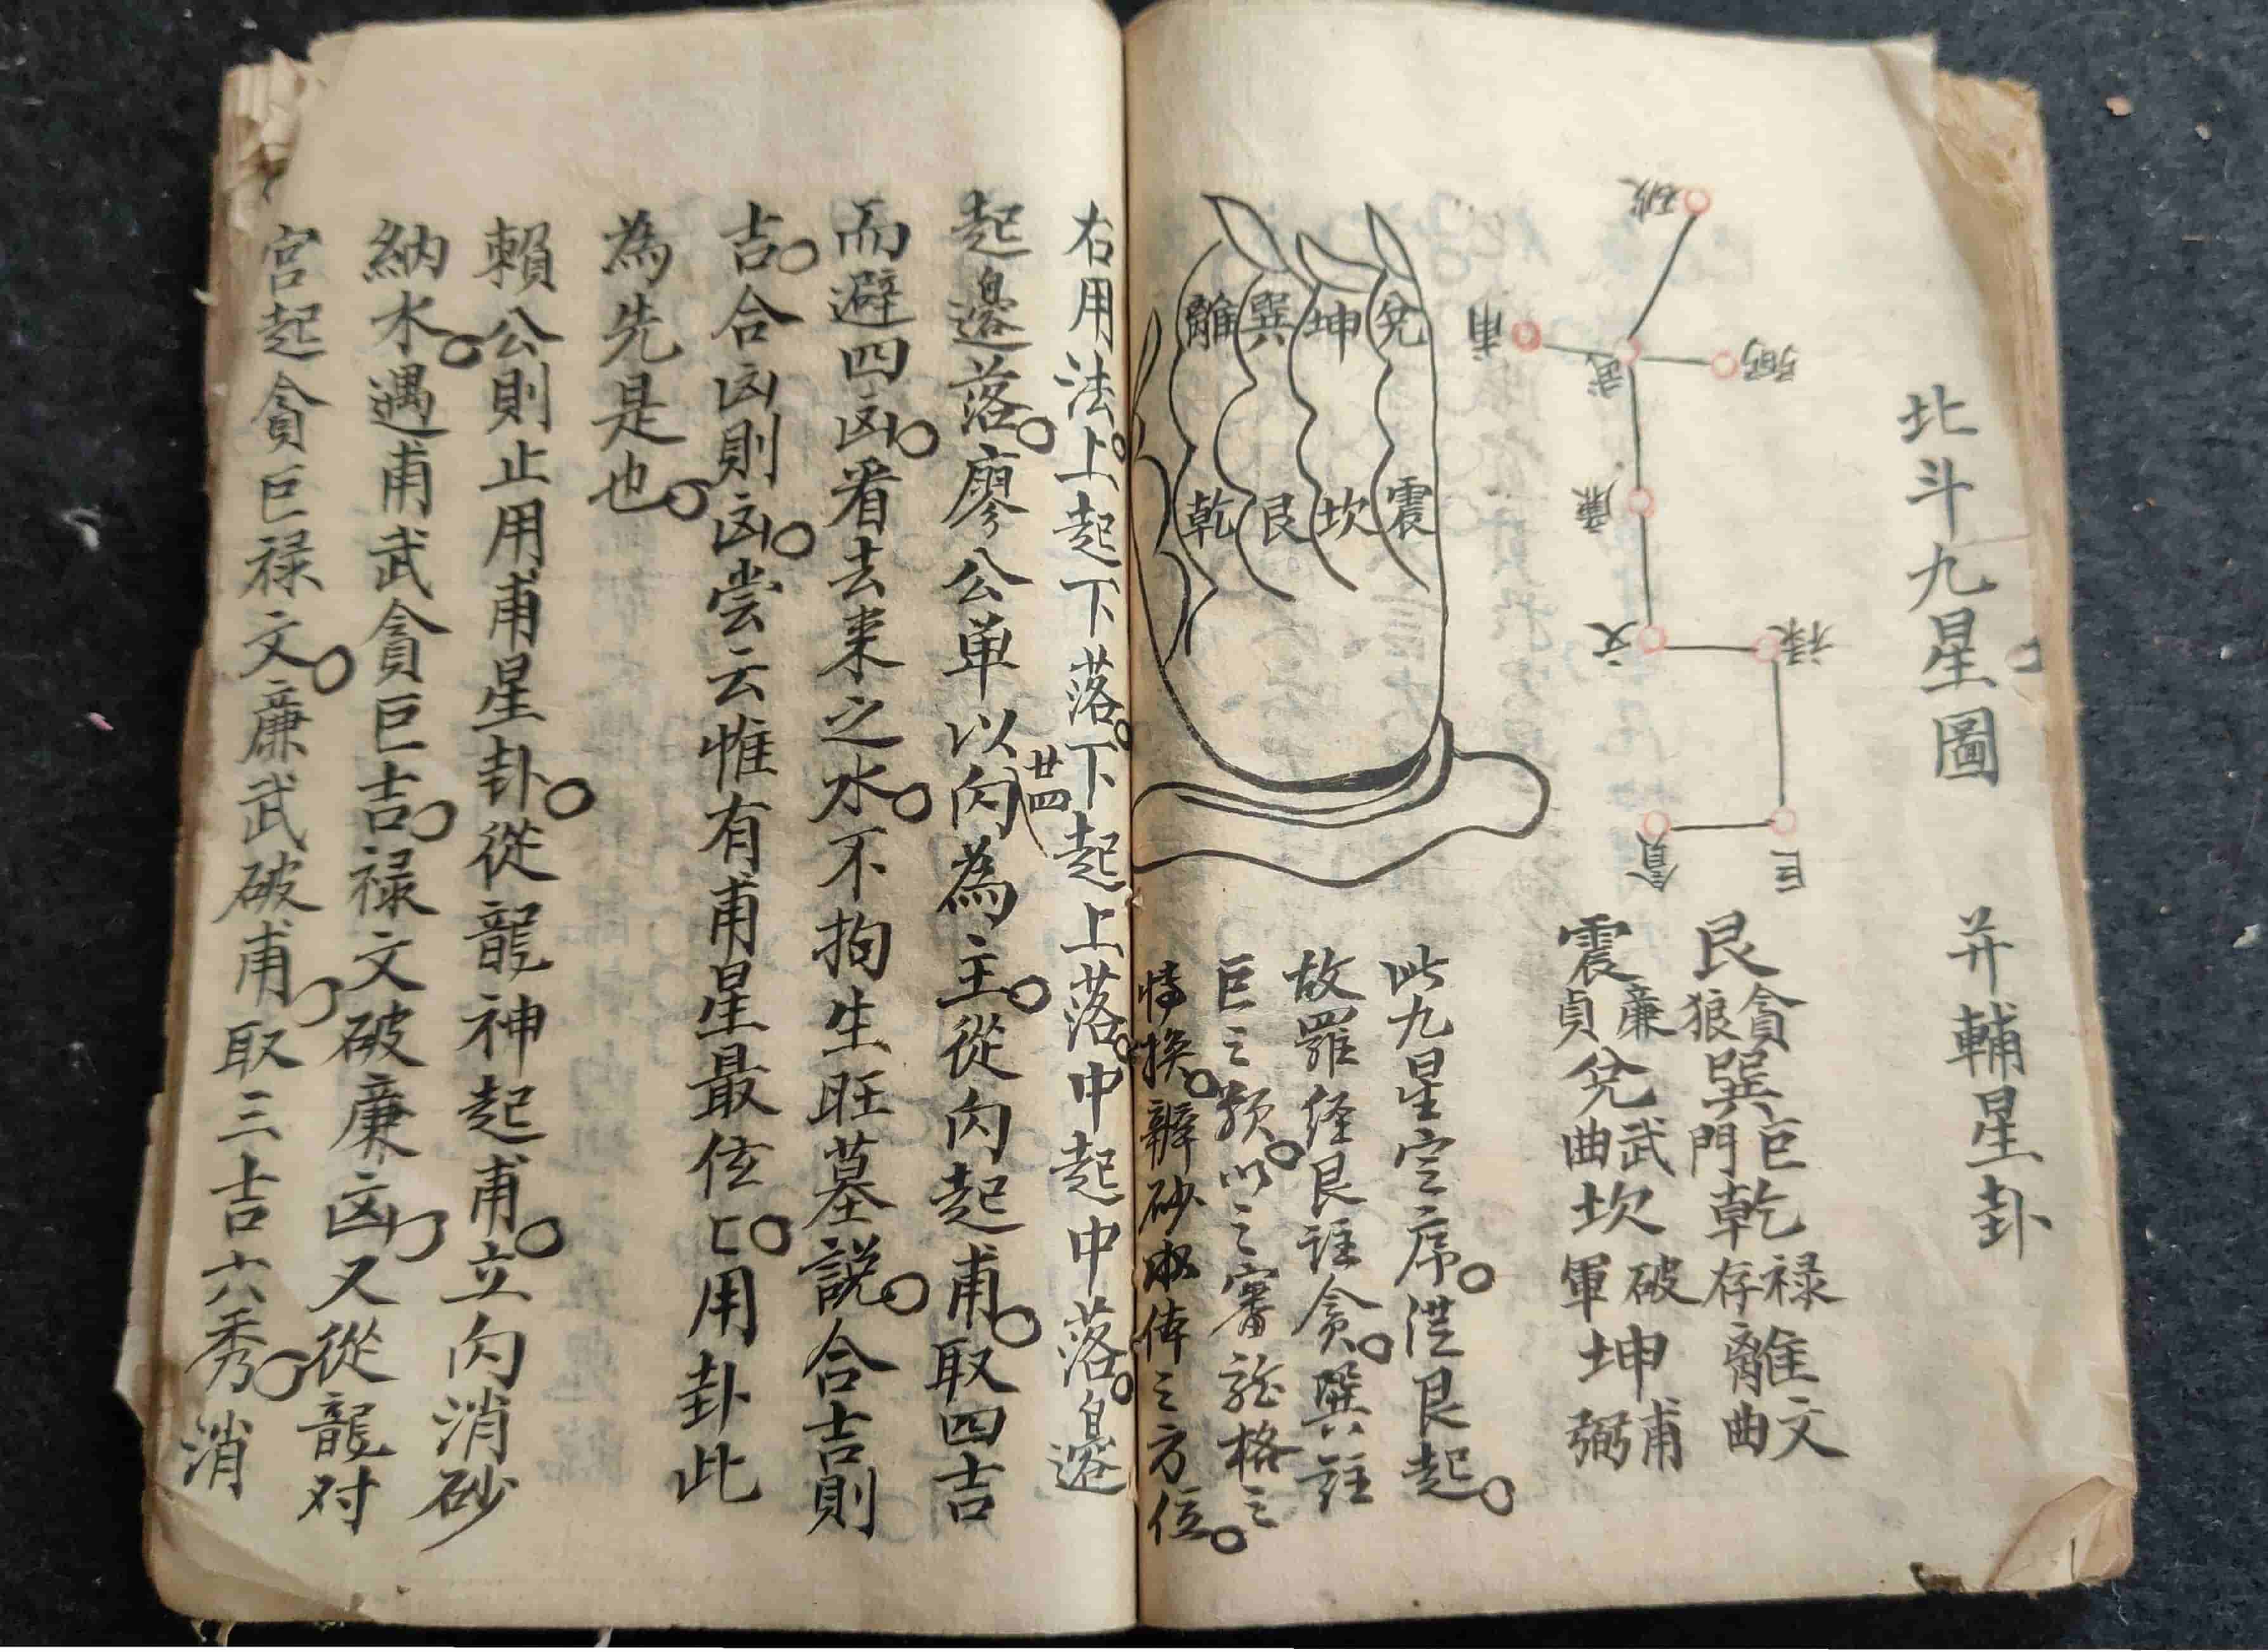 北斗九星圖　并輔星卦
破
甫 武 弼
廉
文 祿
貪 巨
艮貪狼巽巨門乾禄存離文曲
震廉貞兌武曲坎破軍坤甫弼
兌 坤 巽 離
震 坎 艮 乾
此九星定席從艮起
故羅經艮註貪巽註
巨之類以之審龍格之
恃換辨砂水体之方位
右用法上起下落下起上落中起中落邉
起邉落廖公单以内廿四為主從内起甫取四吉
而避四凶看去来之水不拘生旺墓說合吉則
吉合凶則凶尝云惟有甫星最位匕用卦此
為先是也
賴公則止用甫星卦從龍神起甫立向消砂
納水遇甫武貪巨吉禄文破廉凶又從龍对
宮起貪巨禄文廉武破甫取三吉六秀消